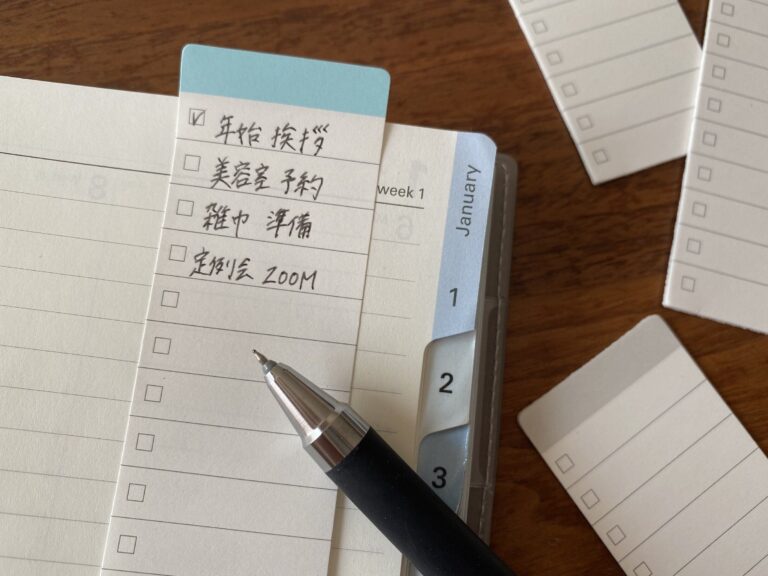 年始 挨拶
美容室 予約
雑巾 準備
定例会 ZOOM
week 1
January
1
2
3